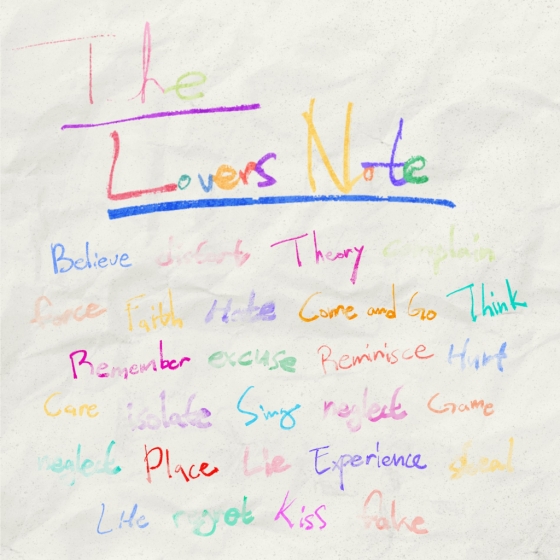 The
Lovers Note
Believe distort Theory complain
force Faith Hate Come and Go Think
Remember excuse Reminisce Hurt
Care isolate Sing neglect Game
neglect Place Lie Experience steal
Life regret Kiss fake